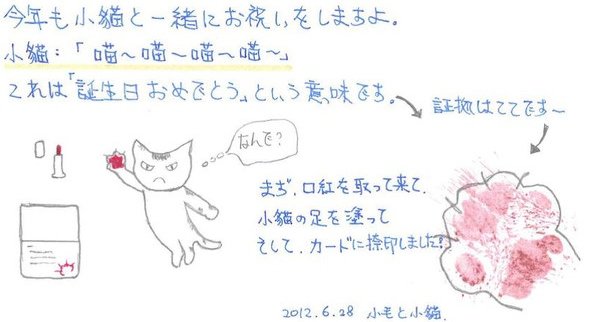 今年も小貓と一緒にお祝いをしますよ。
小貓:「喵～喵～喵～喵～」
これは「誕生日おめでとう」という意味です。
証拠はここです～
なんで?
まず、口紅を取って来て、
小貓の足を塗って
そして、カードに捺印しました。
2012.6.28 小毛と小貓